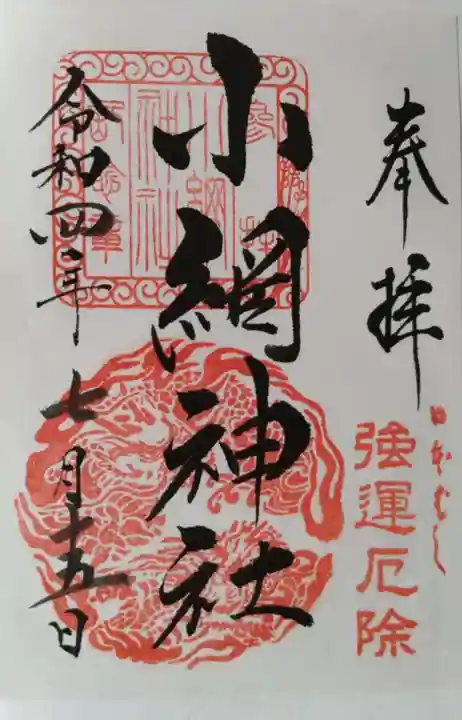 奉拝
日本ばし
強運厄除
小網神社
令和四年七月十五日